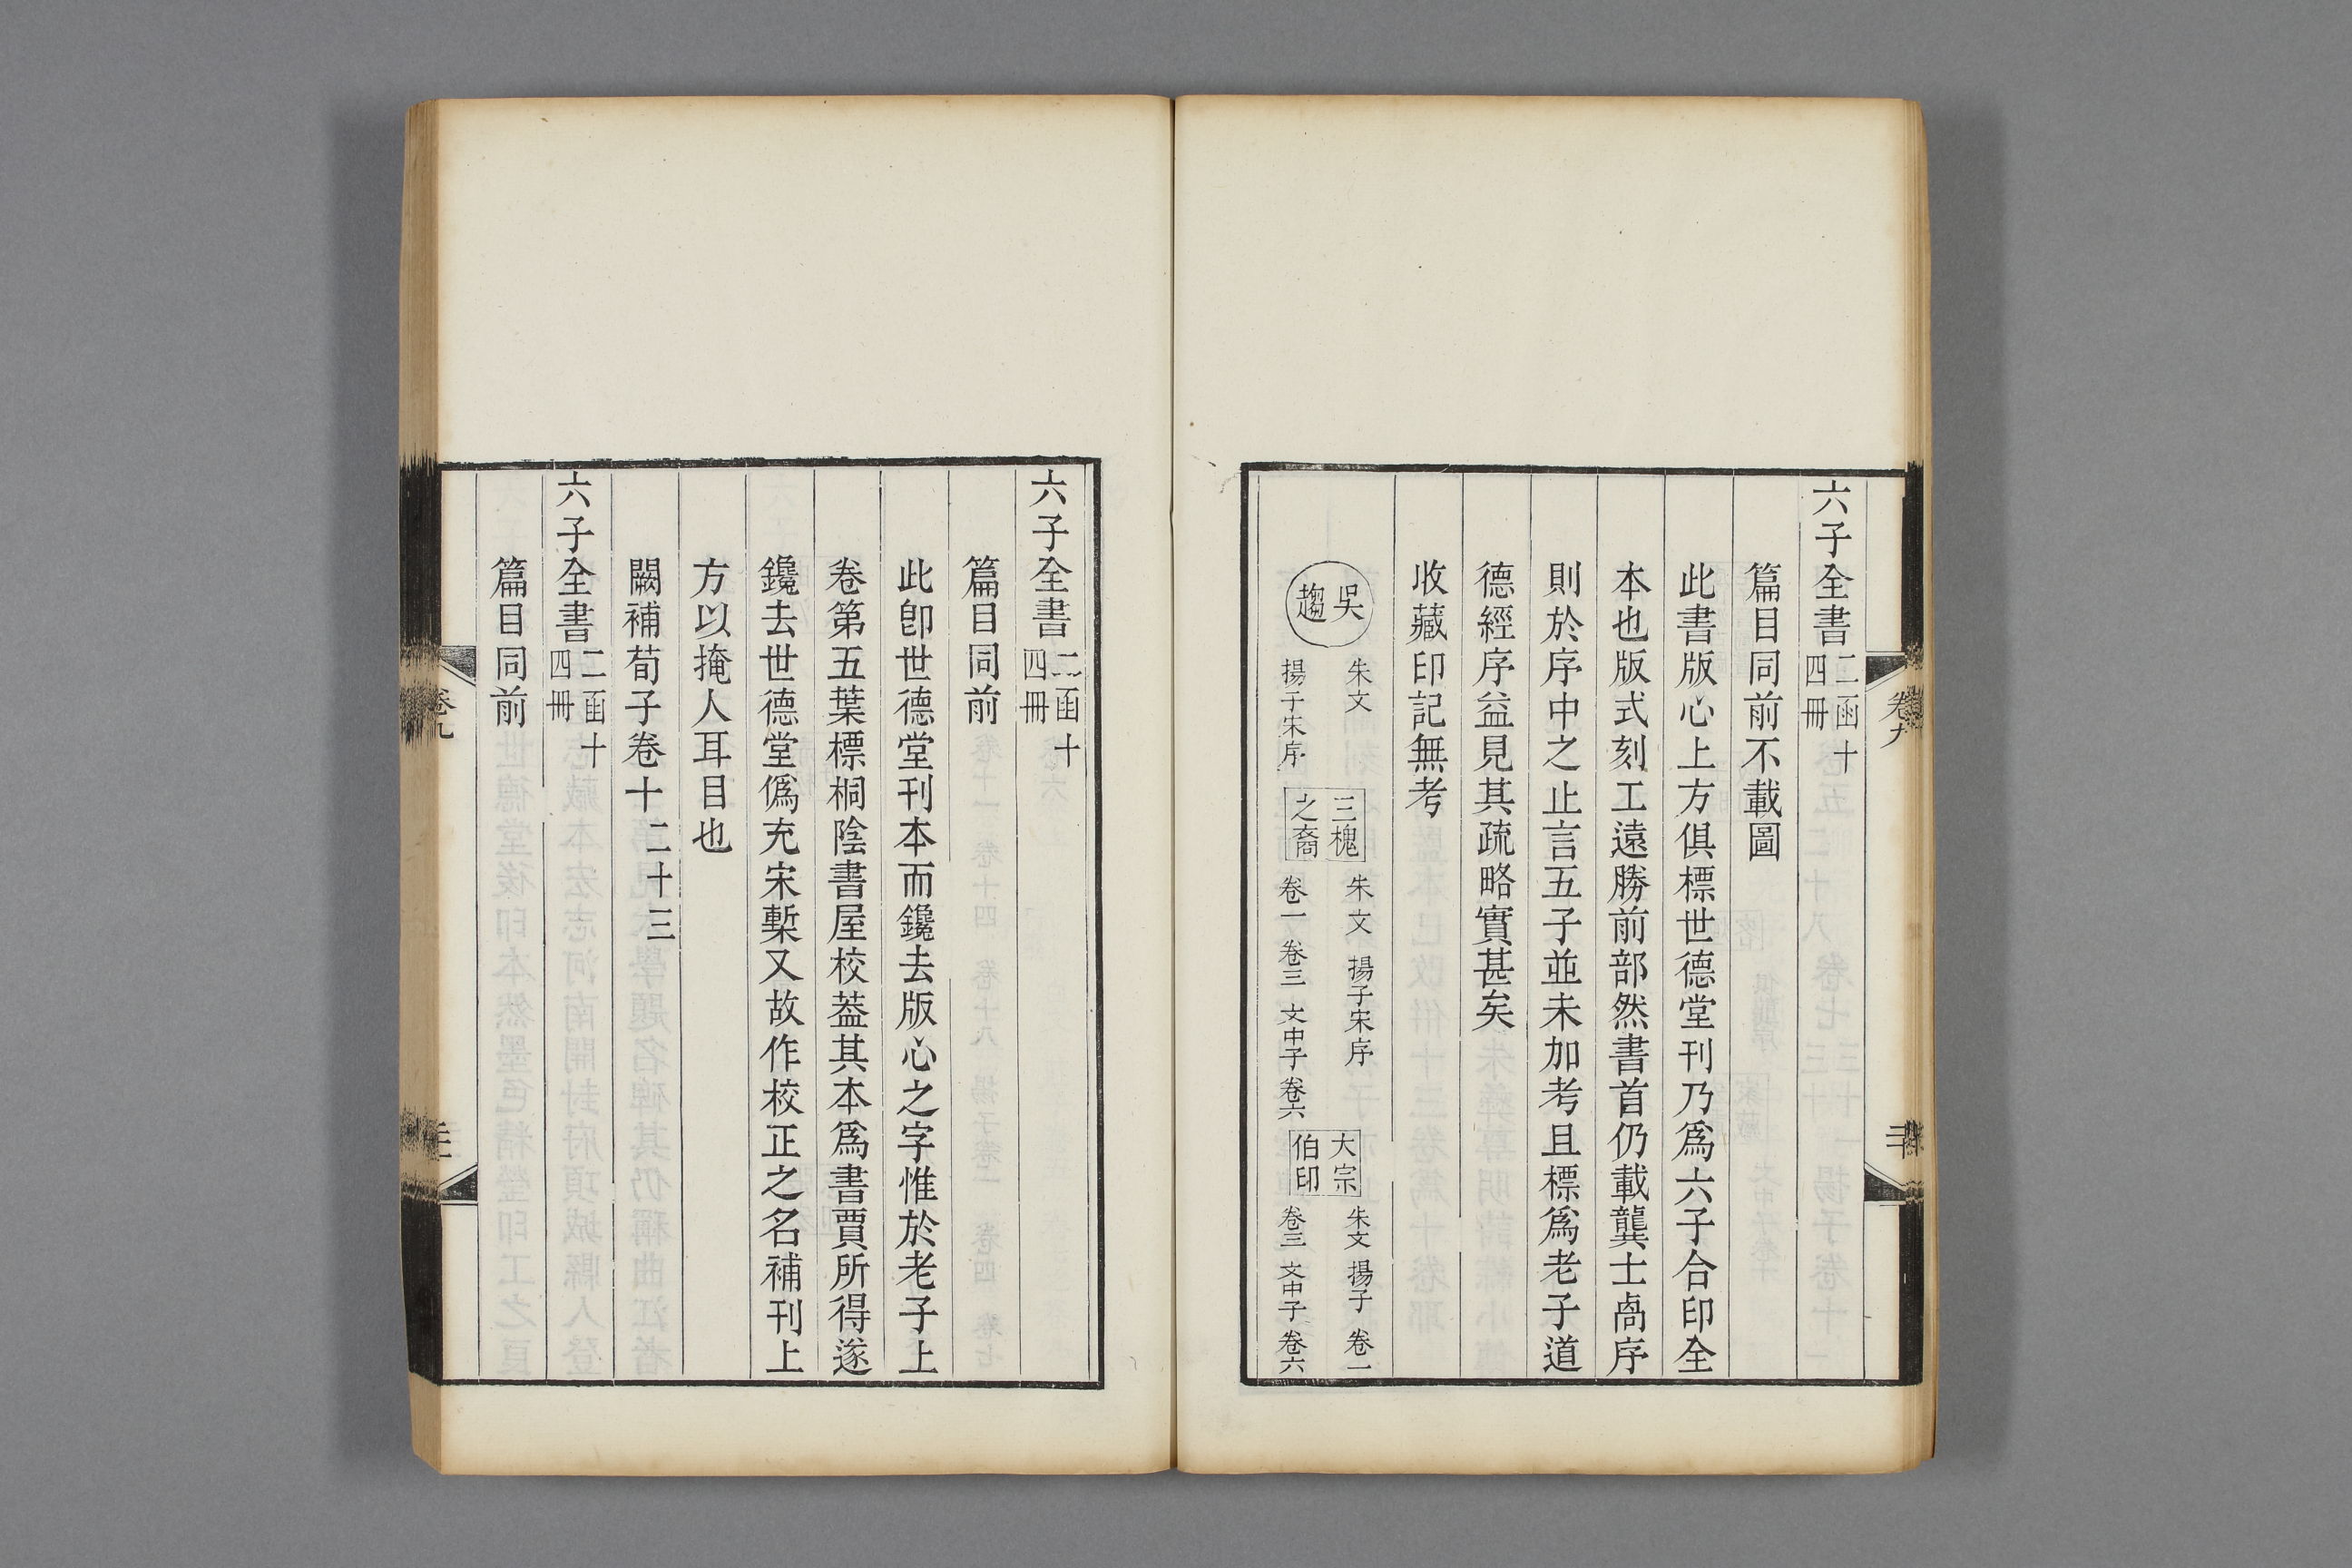 六子全書二函十四冊
篇目同前不載圖
此書版心上方俱標世德堂刊乃爲六子合印全
本也版式刻工遠勝前部然書首仍載龔士卨序
則於序中之止言五子並未加考且標爲老子道
德經序益見其疏略實甚矣
收藏印記無考
吳趨
朱文
揚子宋序
三槐之裔
朱文 揚子宋序
卷一 卷三 文中子卷六
大宗伯印
朱文 揚子 卷一
卷三 文中子 卷六
卷九
六子全書二函十四冊
篇目同前
此卽世德堂刊本而鑱去版心之字惟於老子上
卷第五葉標桐陰書屋校葢其本爲書賈所得遂
鑱去世德堂僞充宋槧又故作校正之名補刊上
方以掩人耳目也
闕補荀子卷十 二十三
六子全書二函十四冊
篇目同前
卷九